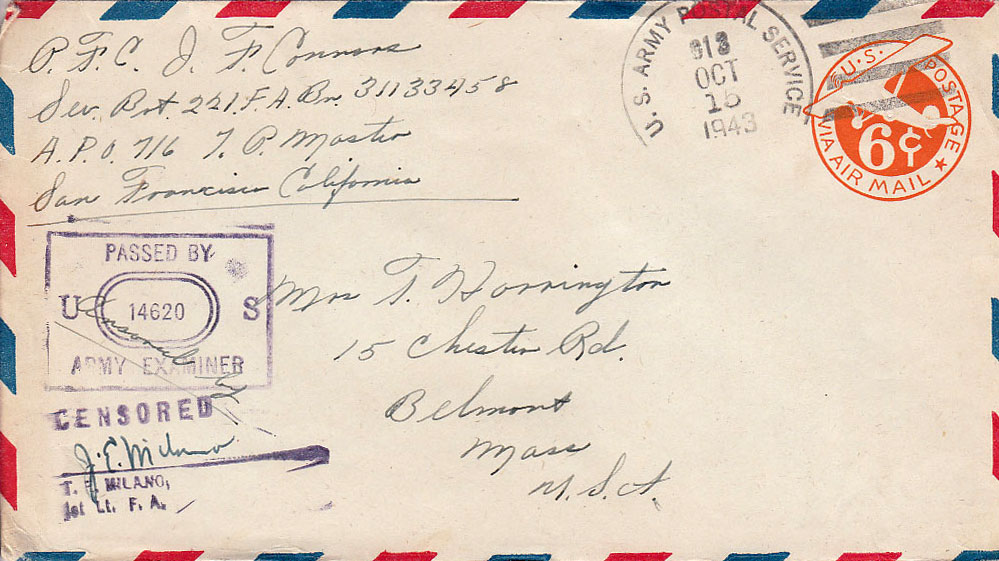 P.F.C. J. F. Connors
Sev. Bat 221 F.A. Bn. 31133458
A.P.O. 716 % P. Master
San Francisco California
U.S. ARMY POSTAL SERVICE
OCT
15
1943
U.S. POSTAGE
6¢
VIA AIR MAIL
PASSED BY
U 14620 S
ARMY EXAMINER
Censored by
CENSORED
J. E. Milano
MILANO,
1st Lt. F. A.
Mrs T. Harrington
15 Chester Rd.
Belmont
Mass
U.S.A.